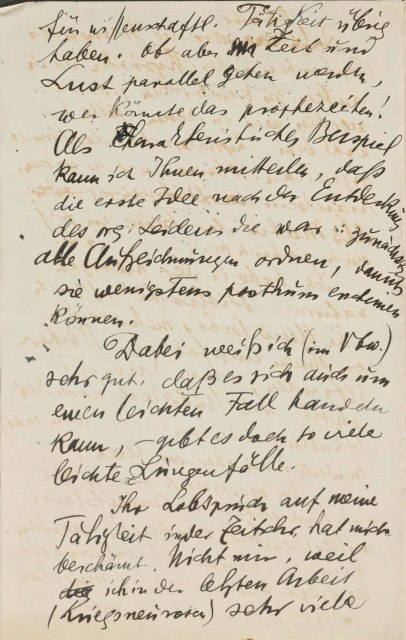 für wissenschaftl. Tätigkeit übrig
haben. Ob aber Zeit und
Lust parallel gehen werden,
wer könnte das prophezeien!
Als charakteristisches Beispiel
kann ich Ihnen mitteilen, daß
die erste Idee nach der Entdeckung
des org. Leidens die war: zunächst
alle Aufzeichnungen ordnen, damit
sie wenigstens posthum erscheinen
können.
Dabei weiß ich (im Vbw.)
sehr gut, daß es sich auch um
einen leichten Fall handeln
kann, – gibt es doch so viele
leichte Lungenfälle.
Ihr Lobspruch auf meine
Tätigkeit in der Zeitschr. hat mich
beschämt. Nicht nur, weil
ich in der letzten Arbeit
(Kriegsneurosen) sehr viele